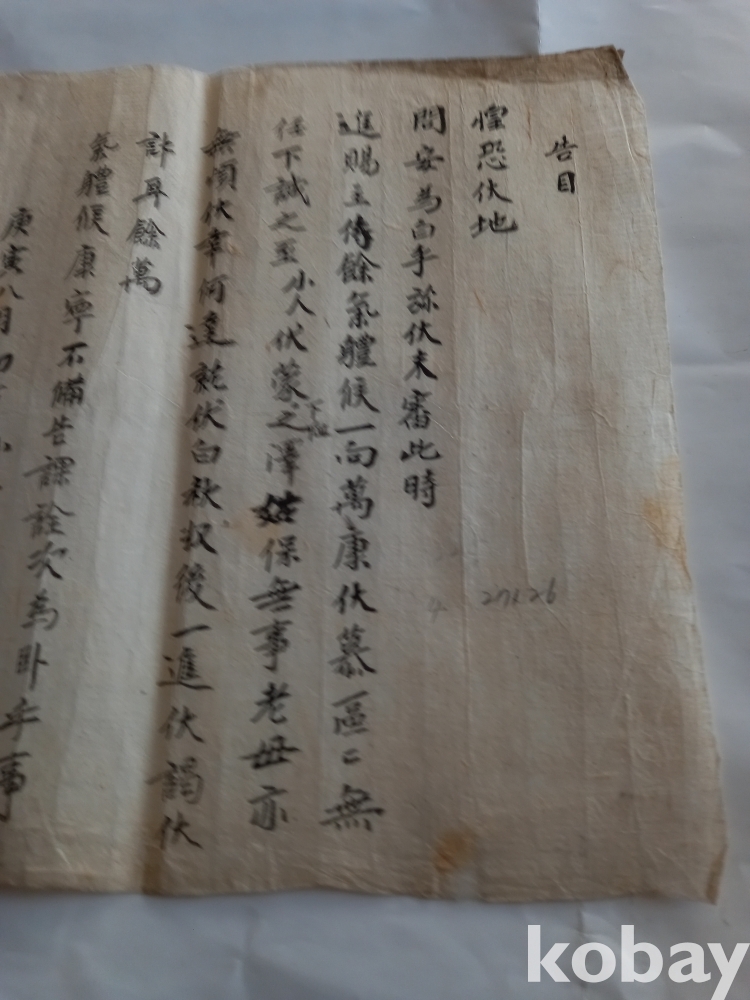 告目
惶恐伏地
問安為白乎弥伏未審此時
進賜主侍餘氣體候一向萬康伏慕區〻無
任下誠之至小人伏蒙下恤之澤姑保無事老母亦
無頉伏幸何達就伏白秋收後一進伏謁伏
計耳餘萬
氣體候康寧不備告課詮次為卧乎事
庚寅八月初
27x26
kobay